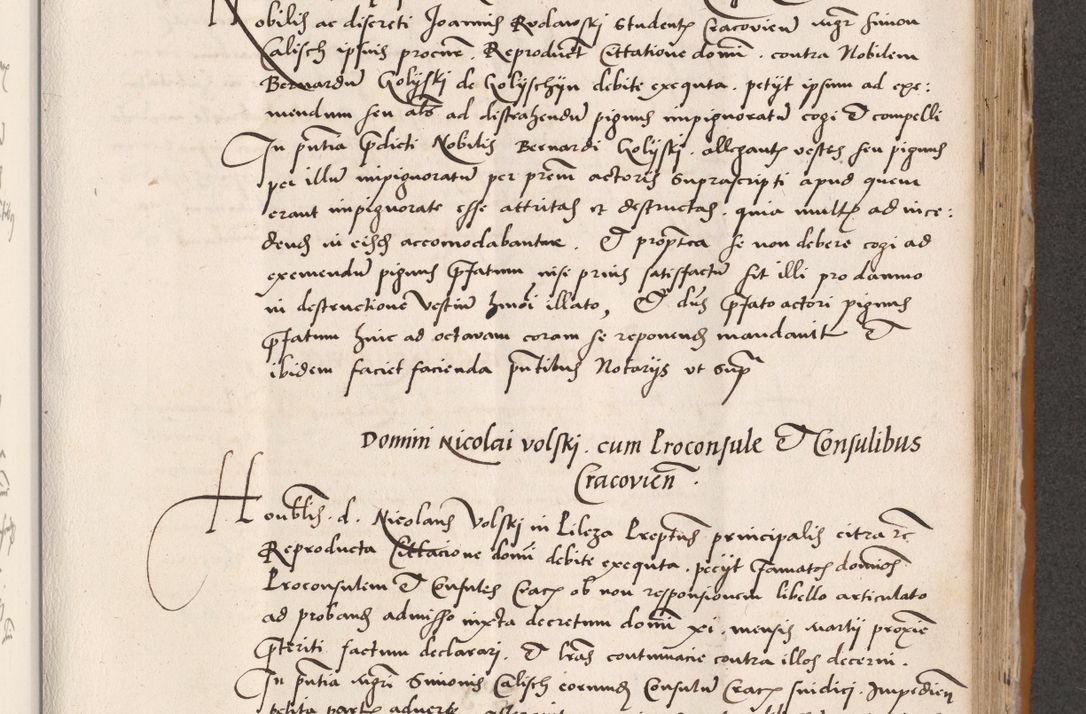 Nobilis ac discreti Joannis Rudawski Studentis Cracovien̄ mgr̄ Simon
Calisch ipsius procur̄ . Reproduct̄ Citatione domi . contra Nobilem
Bernardū Golÿski de Golÿschÿn debite exequta . petyt ipsum ad exe:
mendum seu als̄ ad distrahendū pignus impignoratū cogi et compelli
In pn̄tia p̄dicti Nobilis Bernardi Golÿski . allegantis vestes seu pignus
per illū impignoratū per prem̄ actoris suprascripti apud quem
erant impignorate esse attritas et destructas . quia multis ad ince:
dendū in eisdē accomodabantur . Et propt̄ea se non debere cogi ad
exemendū pignus p̄fatum nisi prius satisfactū sit illi pro damno
in destructione vestium hm̄oi illato, Et dn̄s p̄fato actori pignus
p̄fatum hinc ad octavam coram se reponend̄ mandavit Et
ibidem faciet facienda pn̄tibus Notarÿs ut Sup̄
Domini Nicolai Volski . cum Proconsule et Consulibus
Cracovien̄ .
Honōblis . d . Nicolaus Volski in Pilcza Preptus principalis citra rc̄
Reproducta Cittacione domi debite exequta . petyt famatos dominos
Proconsulem et Consules Crac̄ ob non responsionem libello articulato
ad proband̄ admisso iuxta decretum domi xi . mensis martij proxie
p̄teriti factum declarari . et lrās contumacie contra illos decerni .
In pn̄tia mgri Simonis Calisch eorund̄ Consulū Crac̄ sindici . Impedien̄
petita partis adverse